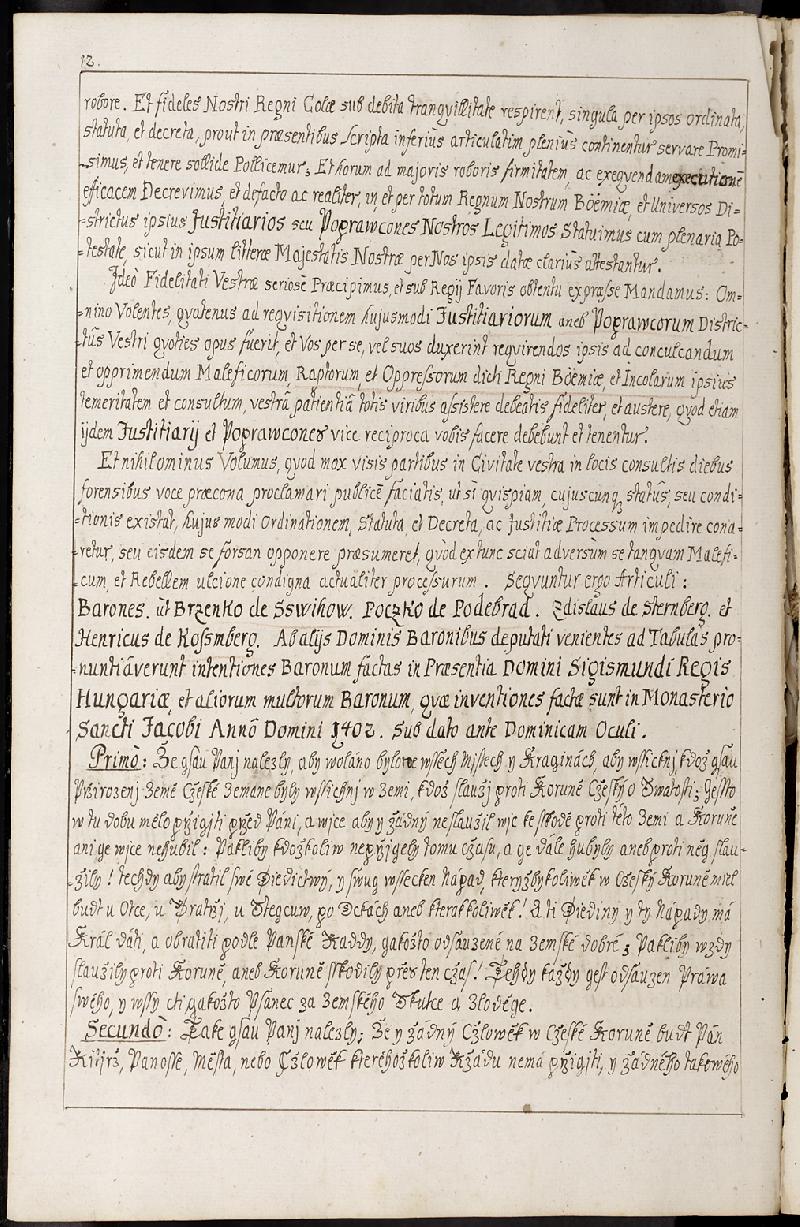 12.
robore. Et fideles Nostri Regni Colæ sub debita tranqvillitate respirent, singula per ipsos ordinata,
statuta, et decreta, prout in præsentibus scripta inferius articulatim plenius continentur servare Promi-
-simus, et tenere sollide Pollicemur; Et horum ad majoris roboris firmitatem, ac exeqvendam executionē
efficacem Decrevimus, et defacto ac realiter, in, et per totum Regnum Nostrum Böemiæ, et Universos Di-
-strictus ipsius Justitiarios seu Poprawcones Nostros Legitimos Statuimus cum plenaria Po-
-testate, sicut in ipsum litteræ Majestatis Nostræ per Nos ipsis datæ clarius attestantur.
Ideò Fidelitati Vestræ seriosè Præcipimus, et sub Regij Favoris obtentu expræsse Mandamus: Om-
-nino Volentes, qvatenus ad reqvisitionem hujusmodi Justitiariorum aneb Poprawcorum Distric-
-tûs Vestri qvoties opus fuerit, et Vos per se, vel suos duxerint reqvirendos ipsis ad conculcandum
et opprimendum Maleficorum, Raptorum, et Oppressorum dicti Regni Böemiæ, et Incolarum ipsius
temeritatem et consultum, vestrâ patientiâ totis viribus assistere debeatis fideliter, et austere, qvod etiam
ijdem Justitiarij et Poprawcones vice reciproca vobis facere debebunt et tenentur.
Et nihilominus Volumus, qvod mox visis partibus in Civitate vestra in locis consultis diebus
forensibus voce præcona proclamari publicè faciatis, ut si qvispiam, cujuscunq status, seu condi-
-tionis existat, hujus modi Ordinationem, Statuta, et Decreta, ac Justitiæ Processum impedire cona-
-retur, seu eisdem se forsan opponere præsumeret, qvòd ex tunc sciat adversùm se tanqvam Malefi-
-cum, et Rebellem ulcione condigna actualiter processurum. Seqvuntur ergo Articuli:
Barones. ùt Brzenko de Sswihow. Poczko de Podebrad. Zdislaus de Sternberg. et
Henricus de Kossmberg. Ab alijs Dominis Baronibus deputati venientes ad Tabulas pro-
-nuntiâverunt intentiones Baronum factas in Præsentia Domini Sigismundi Regis
Hungariæ et aliorum multorum Baronum, qvæ inventiones factæ sunt in Monasterio
Sancti Jacobi Annô Domini 1402. Sub dato ante Dominicam Oculi.
Primò: Že gsau Panj nalezly, aby wolano bylo we wssech Mistech y Kraginách, aby wssickni kdož gsau
Przirozenj Zemè Cžeskè Zemane byly wssichnj w Zemi, kdož slaužj proti Korunè Cžeský o Swatosti; gessto
w tu dobu mèlo przigiti przed Páni, a wjce aby y žádný neslaužil wjc ke sskodè proti tèto Zemi a Korunè
ani ge wjce nehubil: Pakliby kdožkoliw neprzjgely tomu cžasu, a ge dále hubyly aneb proti nèg slau-
-žily! tehdy aby stratil swè Diedictwý, y swug wssecken Nápad, kterýžbykoliwèk w Cžeský Korunè miel
budt u Otce, u Bratrzj, u Stegcuw, po Detkách aneb kterakkoliwèk! A ti Diediny y ty Nápady má
Král dáti, a obrátiti podle Panskè Raddy, gakožto odsauzenè na Zemskè dobrè; Pakliby wždy
slaužily proti Korunè, aneb Korunè sskodily przes ten cžas! Tehdy každý gest odsauzen Práwa
swèho, y wssy cti gakožto Psanec za Zemskèho Sskutce a Zlodège.
Secundò: Take gsau Panj nalezly; Že y žádný Cžlowèk w Cžeskè Korunè budt Pán
Rytjrž, Panosse, Mèsta, nebo Cžlowèk kterèhožkoliw Rzádu nemá przigiti, y žádnèho takowèho